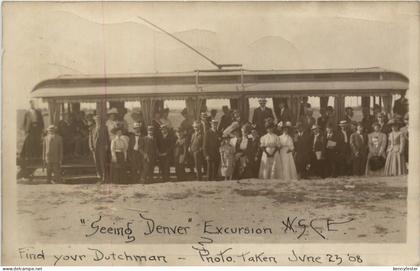 "Seeing Denver" Excursion A.S.C.E.
Find your Dutchman — Photo. Taken June 25 '08